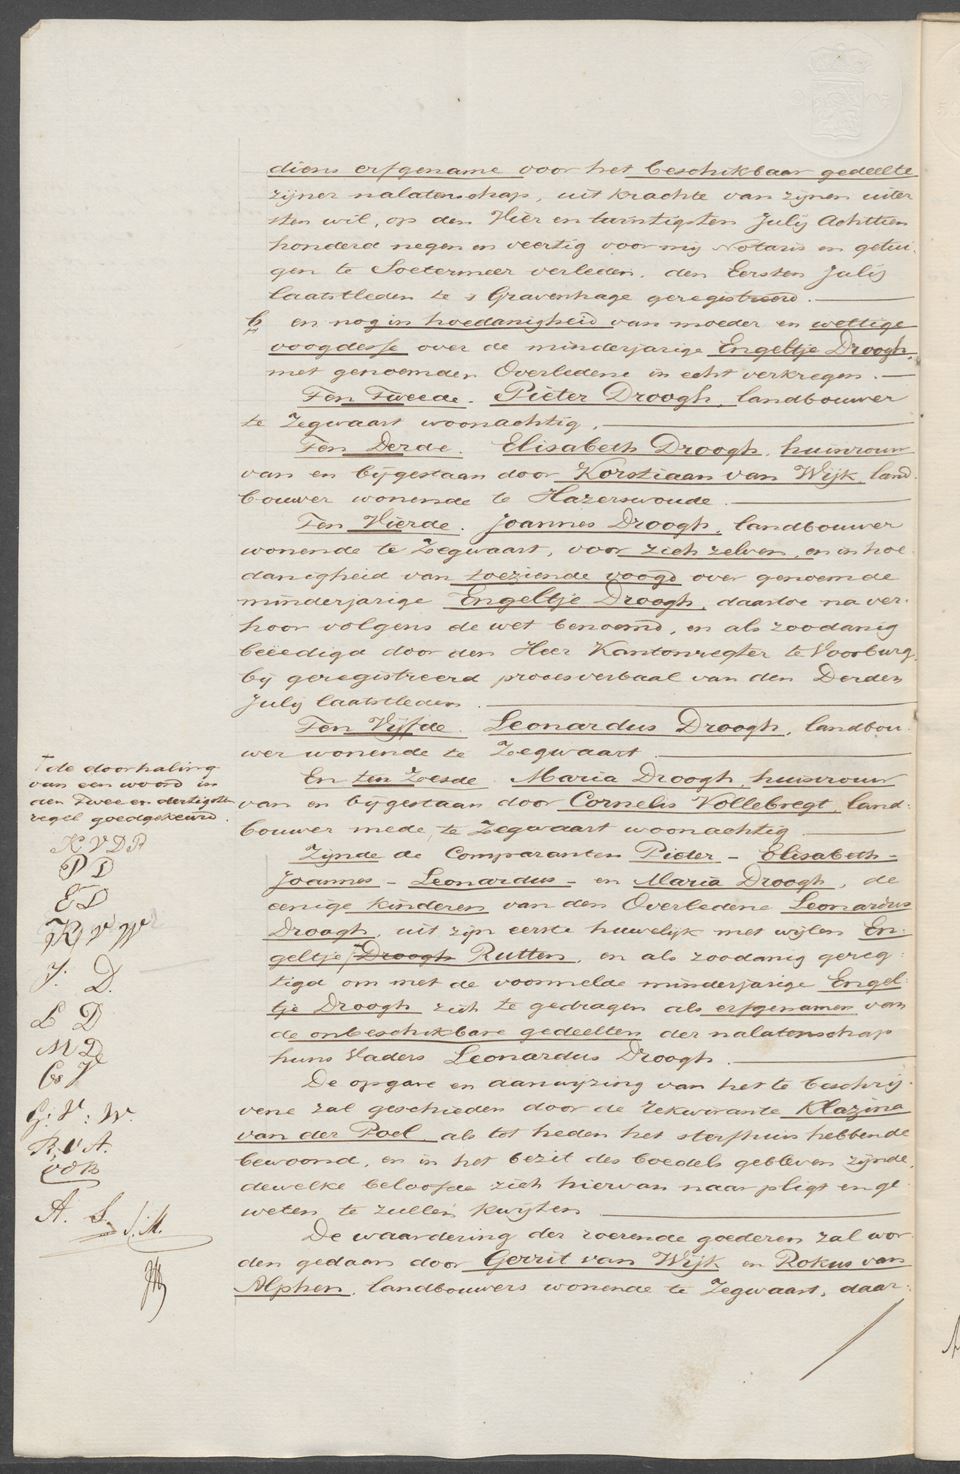 diens erfgename voor het beschikbaar gedeelte
zijner nalatenschap, uit krachte van zijnen uiter
sten wil, op den Vier en twintigsten Julij Achttien
honderd negen en veertig voor mij Notaris en getui-
gen te Soetermeer verleden, den Eersten Julij
laatstleden te s Gravenhage geregistreerd.
b en nog in hoedanigheid van moeder en wettige
voogdesse over de minderjarige Engeltje Droogh,
met genoemden Overledene in echt verkregen.
Ten Tweede. Pieter Droogh, landbouwer
te Zegwaart woonachtig.
Ten Derde. Elisabeth Droogh, huisvrouw
van en bijgestaan door Korstiaan van Wijk, land-
bouwer wonende te Hazerswoude.
Ten Vierde. Joannes Droogh, landbouwer
wonende te Zegwaart, voor zich zelven, en in hoe-
danigheid van toeziende voogd over genoemde
minderjarige Engeltje Droogh, daartoe na ver-
hoor volgens de wet benoemd, en als zoodanig
beëedigd door den Heer Kantonregter te Voorburg,
bij geregistreerd procesverbaal van den Derden
Julij laatstleden.
Ten Vijfde. Leonardus Droogh, landbou-
wer wonende te Zegwaart.
En ten Zesde. Maria Droogh, huisvrouw
van en bijgestaan door Cornelis Vollebregt, land-
bouwer mede te Zegwaart woonachtig.
Zijnde de Comparanten Pieter - Elisabeth -
Joannes - Leonardus - en Maria Droogh, de
eenige kinderen van den Overledene Leonardus
Droogh, uit zijn eerste huwelijk met wijlen En-
geltje Droogh Rutten, en als zoodanig gereg-
tigd om met de voormelde minderjarige Engel-
tje Droogh zich te gedragen als erfgenamen van
de onbeschikbare gedeelten der nalatenschap
huns Vaders Leonardus Droogh.
De opgave en aanwijzing van het te beschrij-
vene zal geschieden door de rekwirante Klazina
van der Poel als tot heden het sterfhuis hebbende
bewoond, en in het bezit des boedels gebleven zijnde,
dewelke beloofde zich hiervan naar pligt en ge-
weten te zullen kwijten
De waardering der roerende goederen zal wor-
den gedaan door Gerrit van Wijk en Rokus van
Alphen, landbouwers wonende te Zegwaart, daar-
de doorhaling
van een woord in
den Twee en dertigsten
regel goedgekeurd.
K V D P
P D
E D
K V W
J. D.
L D
M D
Cs V
G: V: W.
R. v A.
A. S.
J. M.